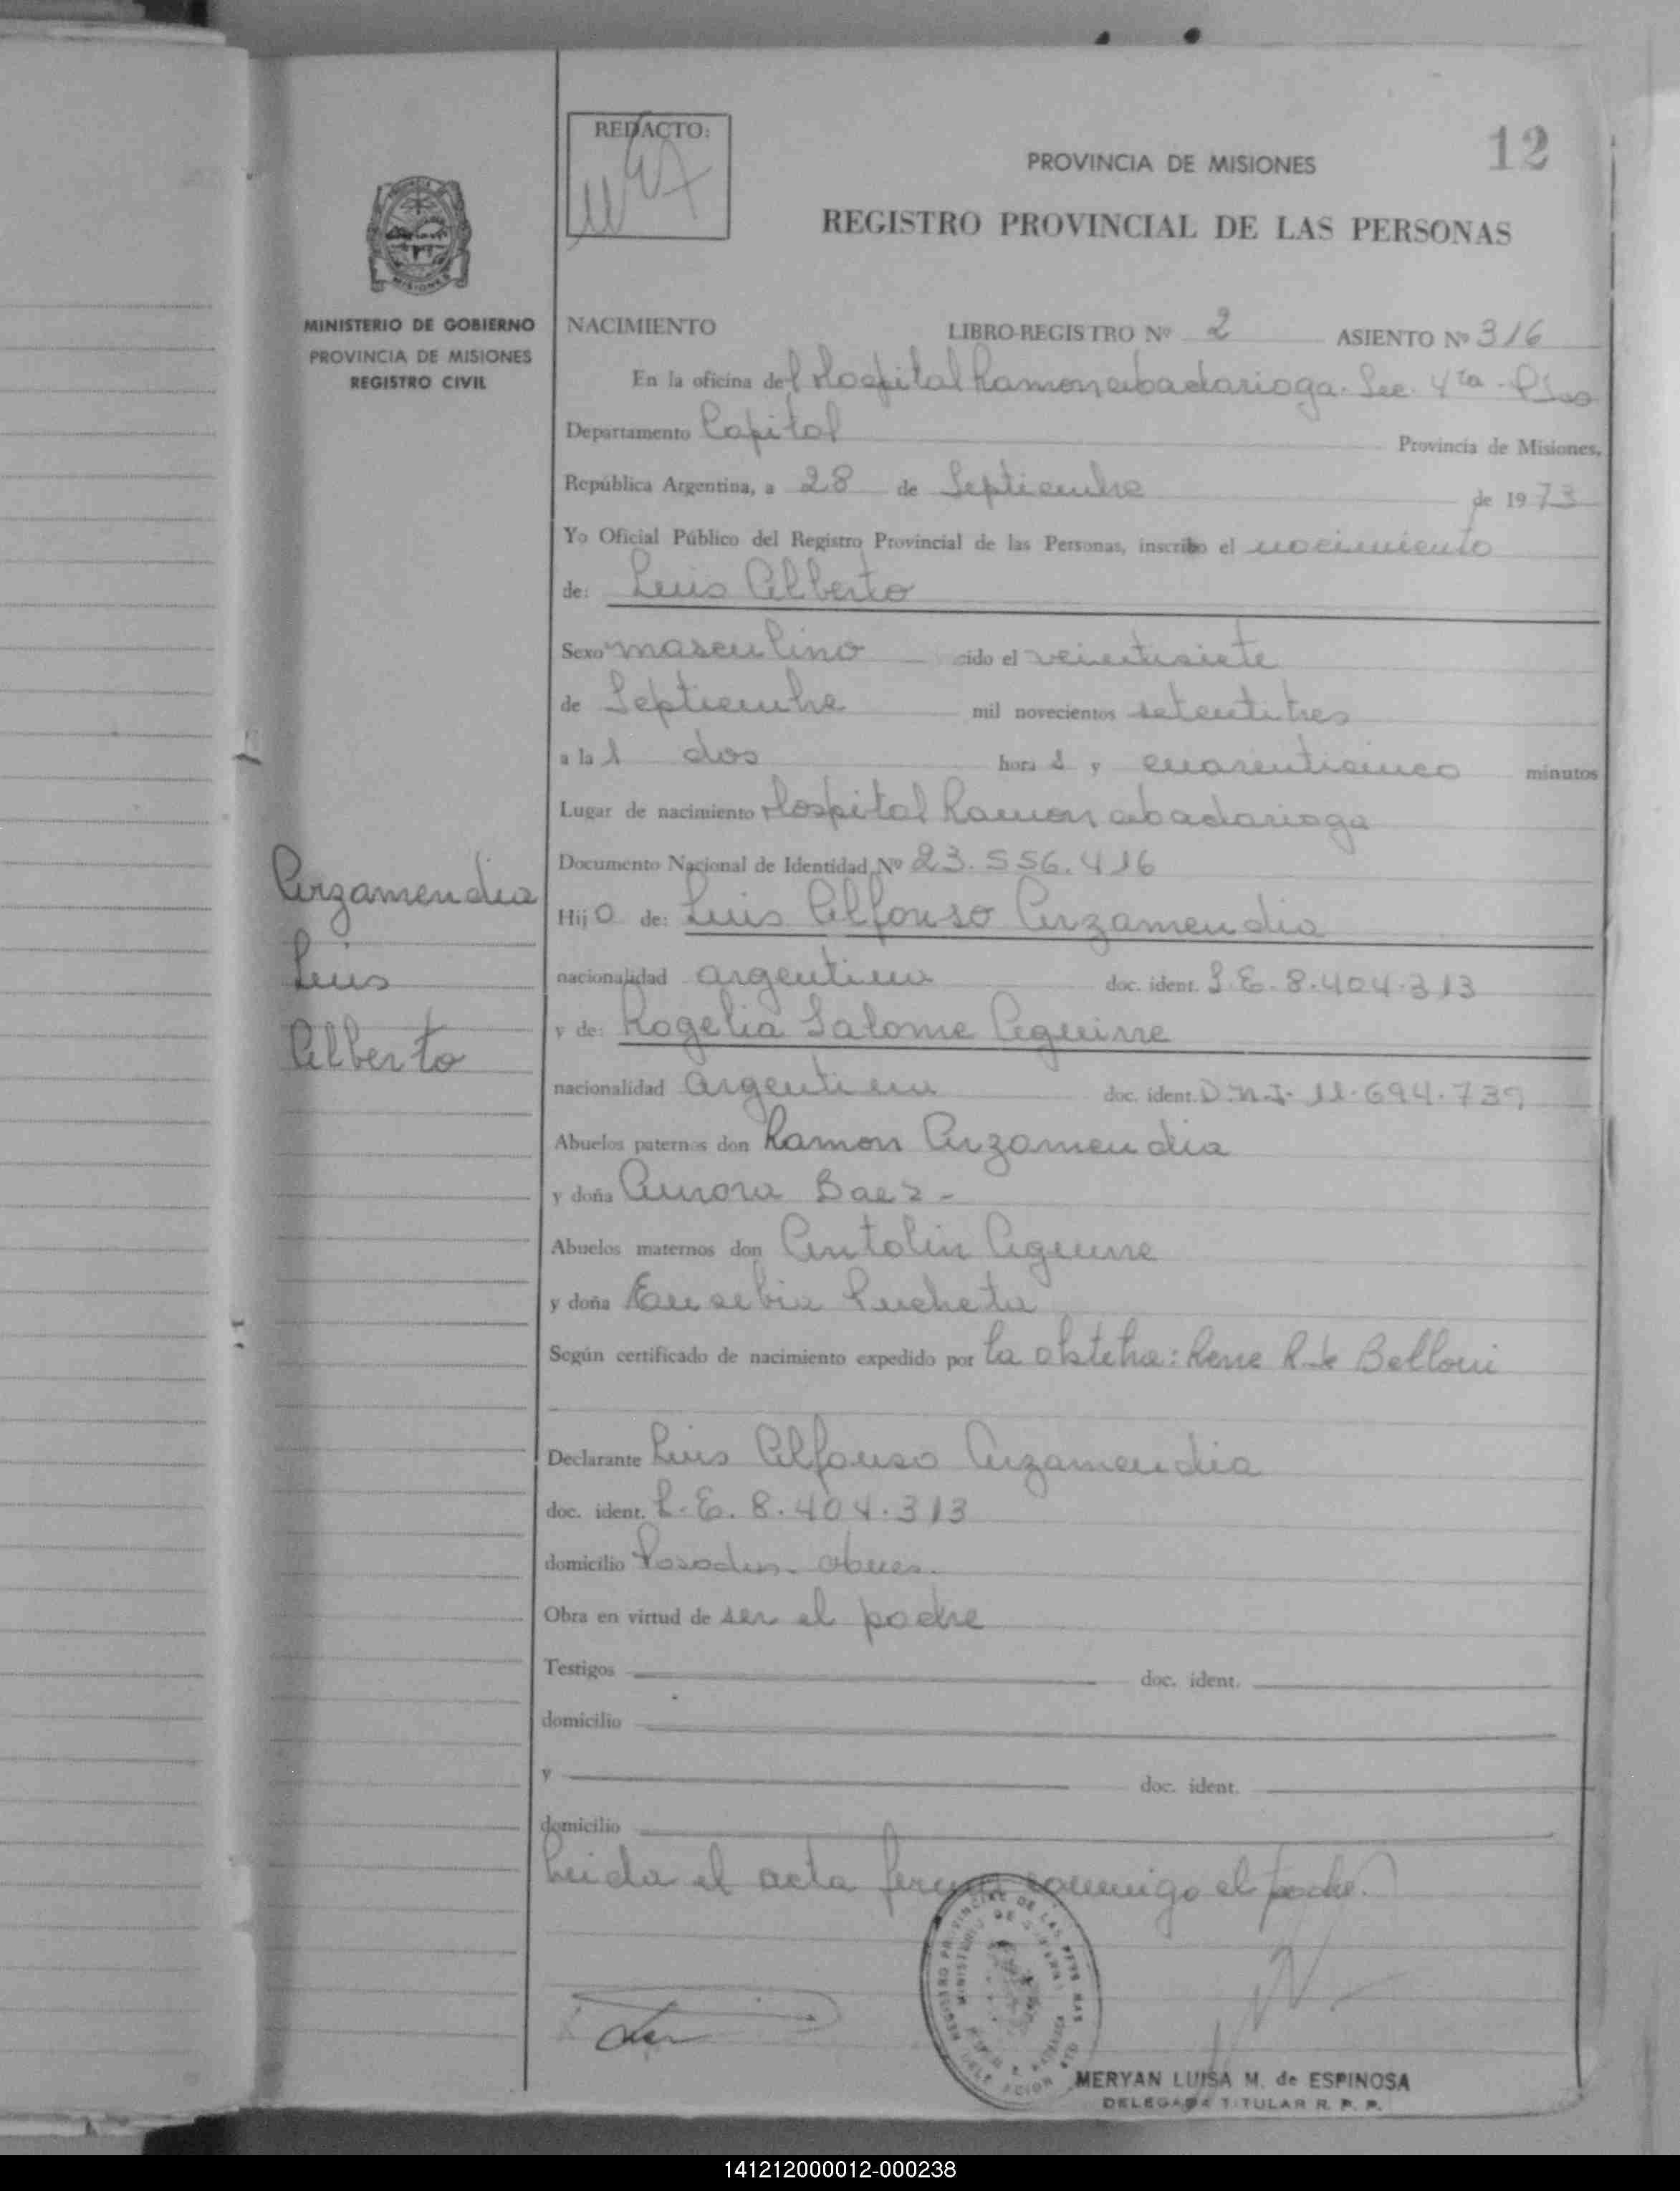 REDACTO:
12
PROVINCIA DE MISIONES
REGISTRO PROVINCIAL DE LAS PERSONAS
MISIONES
MINISTERIO DE GOBIERNO
PROVINCIA DE MISIONES
REGISTRO CIVIL
NACIMIENTO LIBRO-REGISTRO Nº 2 ASIENTO Nº 316
En la oficina del Hospital Ramon abadarioga. Sec. 4ta
Departamento Capital Provincia de Misiones,
República Argentina, a 28 de Septiembre de 1973
Yo Oficial Público del Registro Provincial de las Personas, inscribo el nacimiento
de: Luis Alberto
Sexo masculino cido el veintisiete
de Septiembre mil novecientos setentitres
a la s dos hora s y cuarenticinco minutos
Lugar de nacimiento Hospital Ramon abadarioga
Documento Nacional de Identidad Nº 23.556.416
Hijo de: Luis Alfonso Arzamendia
nacionalidad argentina doc. ident. L.E. 8.404.313
y de: Rogelia Salome Aguirre
nacionalidad argentina doc. ident. D.N.I. 11.694.739
Abuelos paternos don Ramon Arzamendia
y doña Aurora Baez -
Abuelos maternos don Antolin Aguirre
y doña Eusebia Lucheta
Según certificado de nacimiento expedido por la obstetra: Rene R. de Belloni
Declarante Luis Alfonso Arzamendia
doc. ident. L.E. 8.404.313
domicilio Posadas.
Obra en virtud de ser el padre
Testigos doc. ident.
domicilio
y doc. ident.
domicilio
Leida el acta firma conmigo el padre.
Arzamendia
Luis
Alberto
REGISTRO PROVINCIAL DE LAS PERSONAS
MINISTERIO DE GOBIERNO
MERYAN LUISA M. de ESPINOSA
DELEGADA TITULAR R. P. P.
141212000012-000238